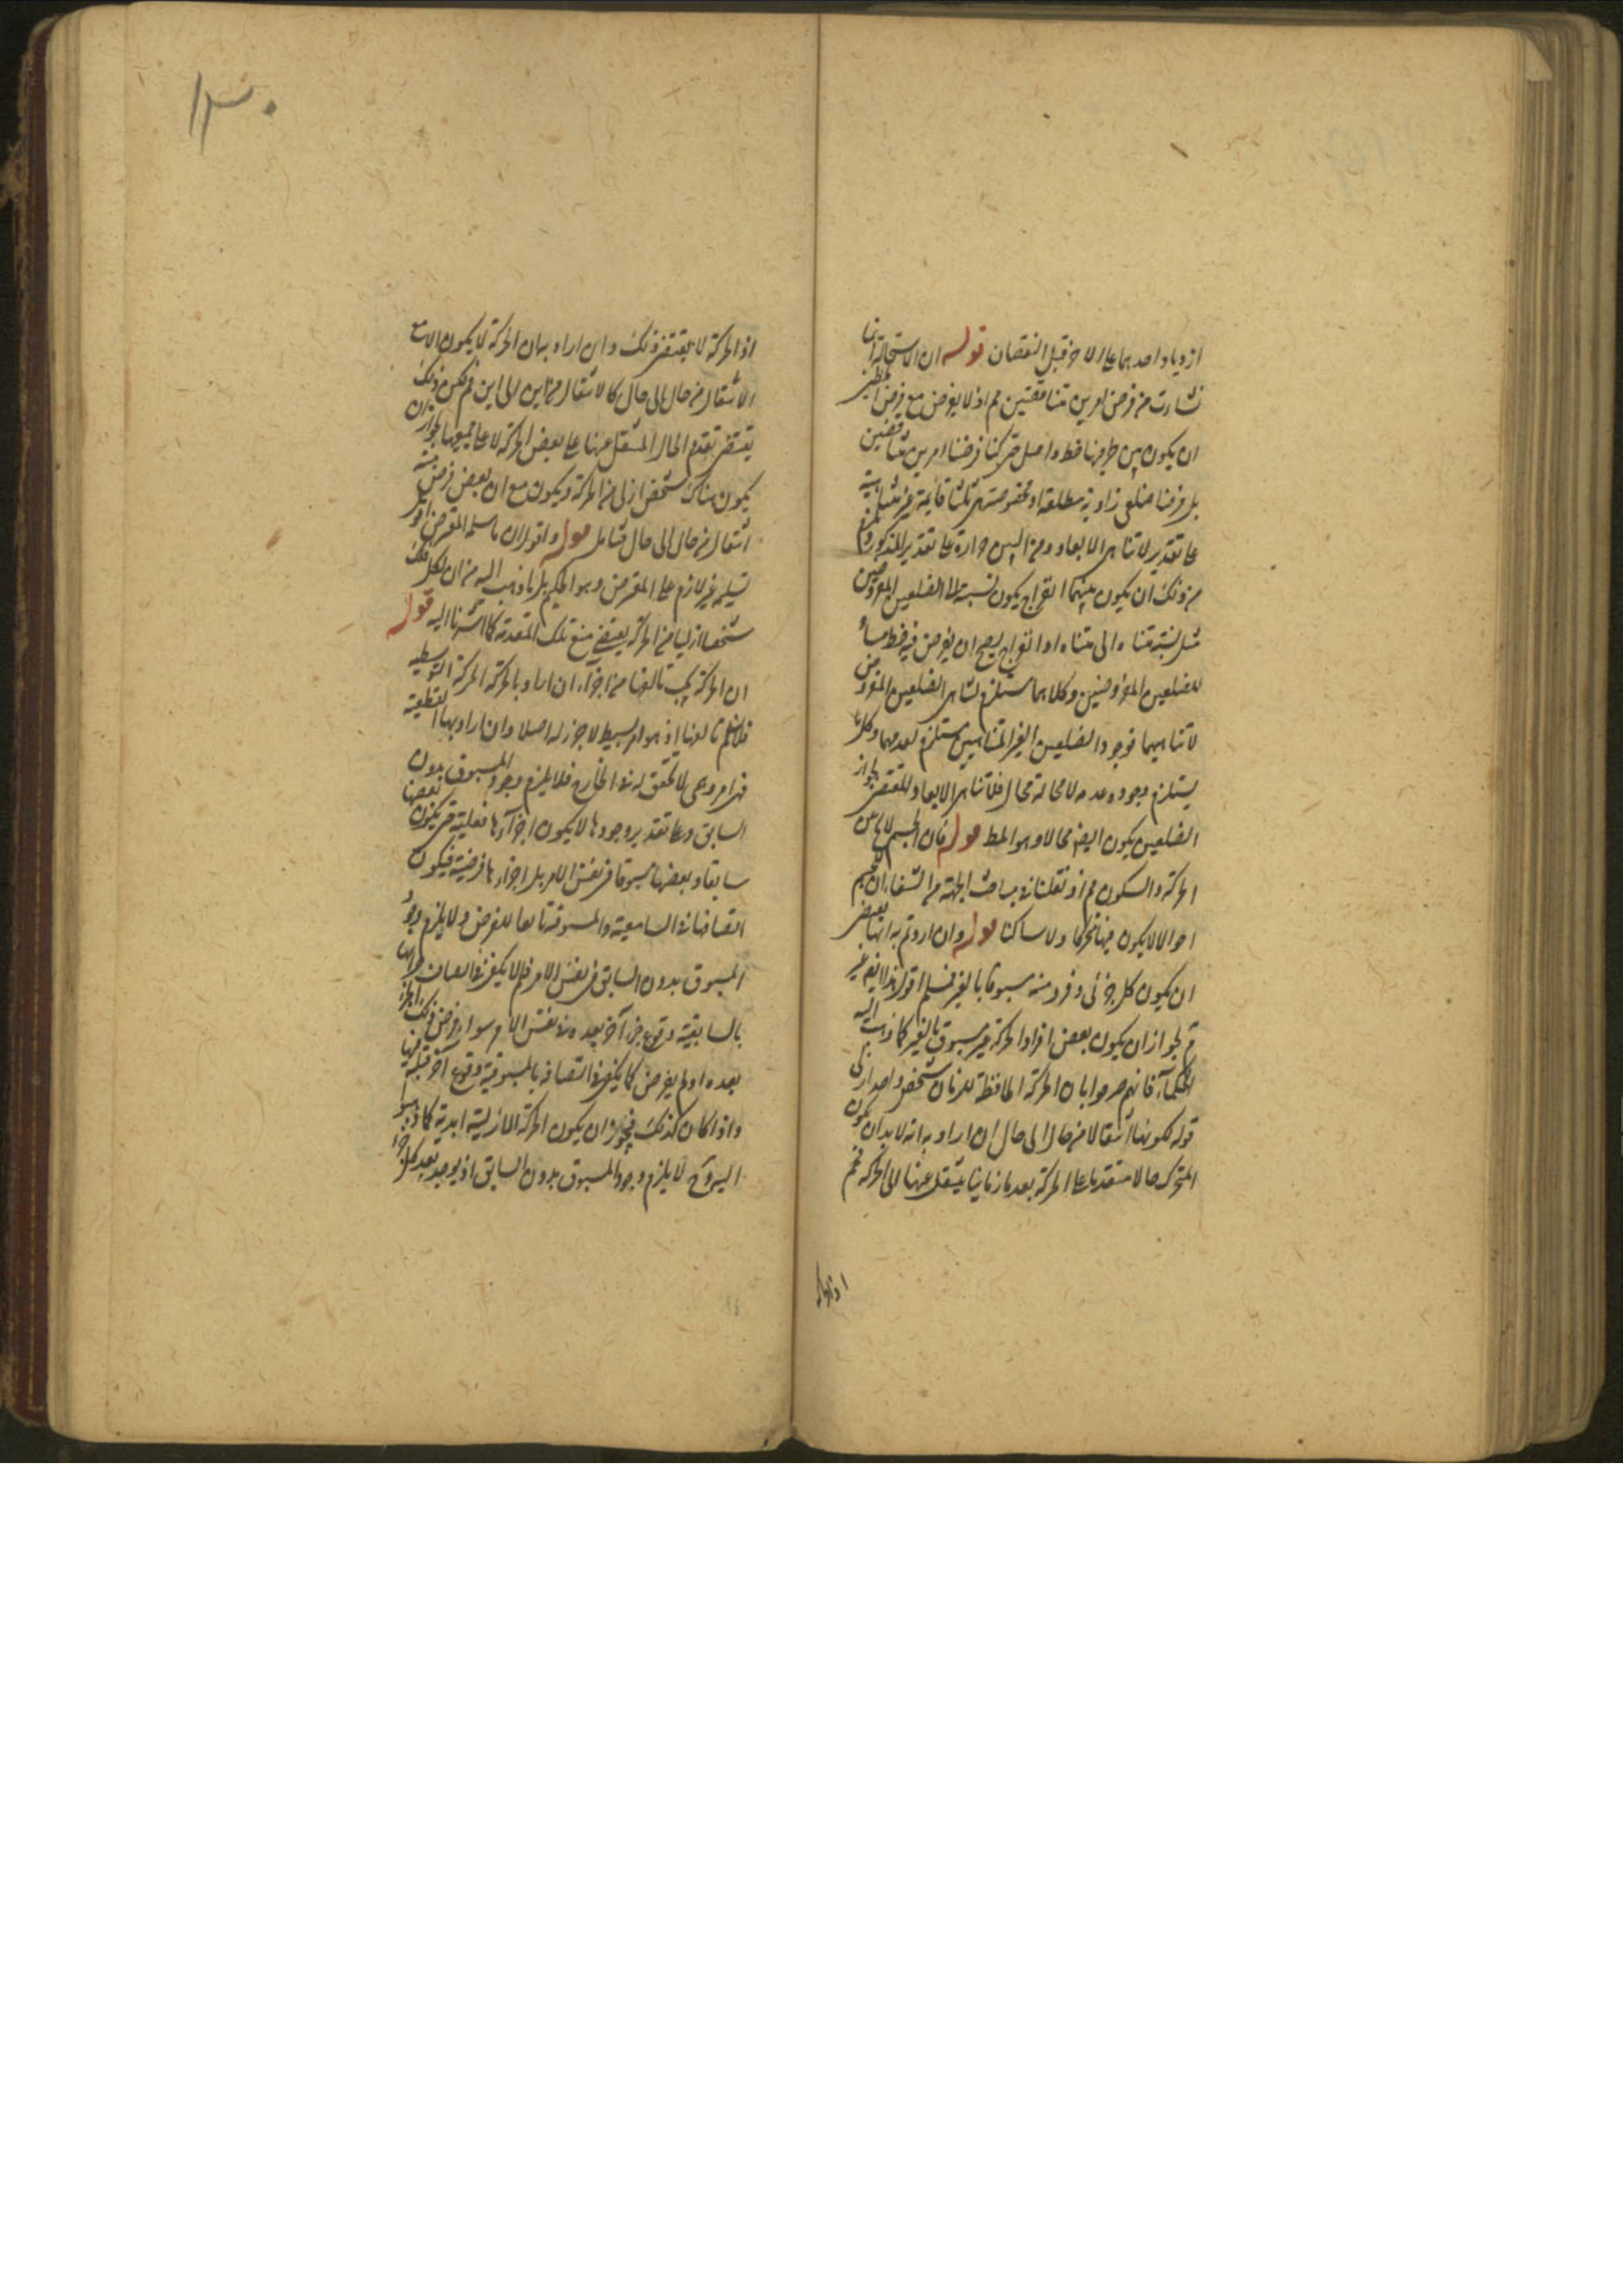 ازدياد احدهما على الاخر قبل النقصان قوله ان الاستحالة انما
نشات من فرض امرين متناقضين مم اذ لا يفرض مع فرض
ان يكون بين طرفيها خط واصل حتى كنا فرضنا امرين متناقضين
بل فرضنا ضلعى زاوية مطلقة او مخصوصة هى ثلثا قائمة غير متناهية
على تقدير لاتناهى الابعاد ومن البين جوازه على تقدير المذكور
من ذلك ان يكون بينهما انفراج يكون نسبته الى الضلعين المفروضين
مثل نسبة متناه الى متناه او انفراج يصح ان يفرض فيه خط مساو
للضلعين المفروضين وكلاهما مستلزم لتناهى الضلعين المفروض
لاتناهيهما فوجود الضلعين الغير المتناهيين مستلزم لعدمهما وكل ما
يستلزم وجوده عدمه لا محالة محال فلاتناهى الابعاد المقتضى لجواز
الضلعين يكون ايضا محالا وهو المط قوله فان الجسم لا يخ عن
الحركة والسكون مم اذ نقلنا فى مباحث الجهة من الشفاء ان للجسم
احوالا لا يكون فيها متحركا ولا ساكنا قوله وان اردتم به انها يقتضى
ان يكون كل جزئى وفرد منه مسبوقا بالغير فمسلم اقول هذا ايضا غير
تم لجواز ان يكون بعض افراد الحركة غير مسبوق بالغير كما ذهب اليه
الحكماء فانهم صرحوا بان الحركة الحافظة للزمان شخص واحد ازلى
قوله لكونها انتقالا من حال الى حال ان اراد به انه لا بد ان يكون
المتحرك حالا متقدما على الحركة بعدما زمانيا ينتقل عنها الى الحركة فمم
اذ الحركة
١٣٠
اذ الحركة لا يقتضى ذلك وان اراد به ان الحركة لا يكون الا مع
الانتقال من حال الى حال كالانتقال من اين الى اين فمم لكن ذلك
يقتضى تقدم الحال المنتقل عنها على بعض الحركة لا على جميعها لجواز ان
يكون هناك شخص ازلى من الحركة ويكون مع ان بعض فرض منه
انتقال من حال الى حال فتامل قوله واقول ان ما سلمه المعترض
تسليمه غير لازم على المعترض وهو الحكيم بل ما ذهب اليه من ان لكل فلك
شخصا ازليا من الحركة يقتضى منع تلك المقدمة كما اشرنا اليه قوله
ان الحركة يجب تالفها من اجزاء ان اراد بالحركة الحركة التوسطية
فلا نسلم تالفها اذ هو امر بسيط لا جزء له اصلا وان اراد بها القطعية
فهى امر وهمى لا تحقق له فى الخارج فلا يلزم وجود المسبوق بدون
السابق وعلى تقدير وجودها لا يكون اجزاءها فعلية حتى يكون بعضها
سابقا وبعضها مسبوقا فى نفس الامر بل اجزاءها فرضية فيكون
اتصافها بالسابقية والمسبوقية تابعا للفرض ولا يلزم وجود
المسبوق بدون السابق فى نفس الامر فلم لا يكفى فى اتصاف
بالسابقية وقوع جزء آخر بعده فى نفس الامر سواء فرض ذلك الجزء
بعده او لم يفرض كما يكفى فى اتصافه بالمسبوقية وقوع آخر قبله
واذا كان كذلك فيجوز ان يكون الحركة الازلية ابدية كما ذهبوا
اليه وح لا يلزم وجود المسبوق بدون السابق اذ يوجد بعد كل جزء